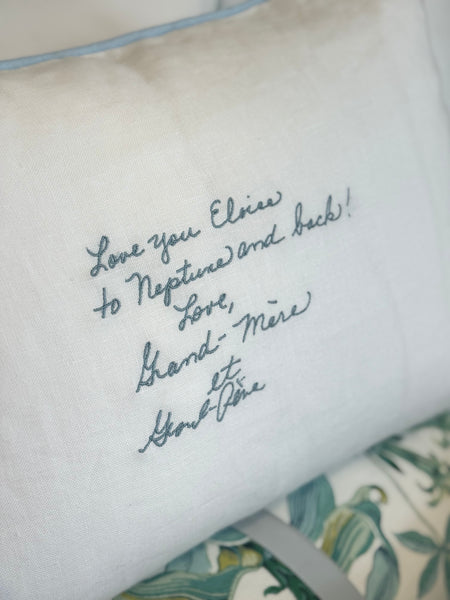 Love you Eloise
to Neptune and back!
Love,
Grand-Mère
et
Grand-Père